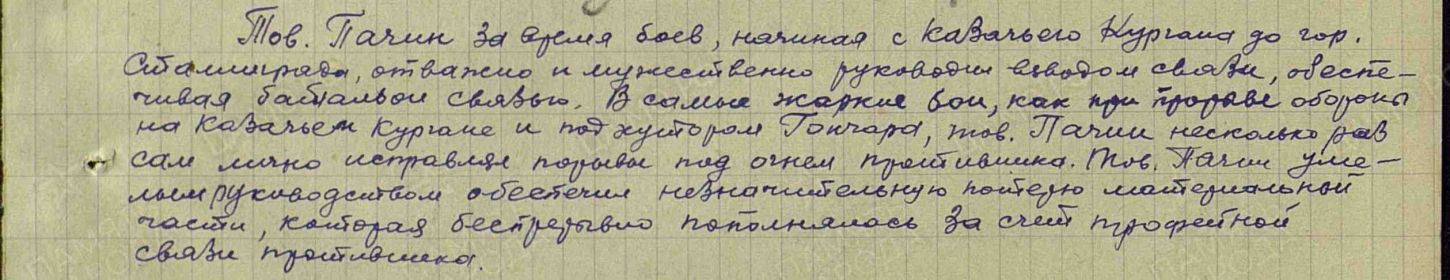 Тов. Пачин за время боев, начиная с Казачьего Кургана до гор.
Сталинграда, отважно и мужественно руководил взводом связи, обеспе-
чивая батальон связью. В самые жаркие бои, как при прорыве обороны
на Казачьем Кургане и под хутором Гончара, тов. Пачин несколько раз
сам лично исправлял порывы под огнем противника. Тов. Пачин уме-
лым руководством обеспечил незначительную потерю материальной
части, которая беспрерывно пополнялась за счет трофейной
связи противника.